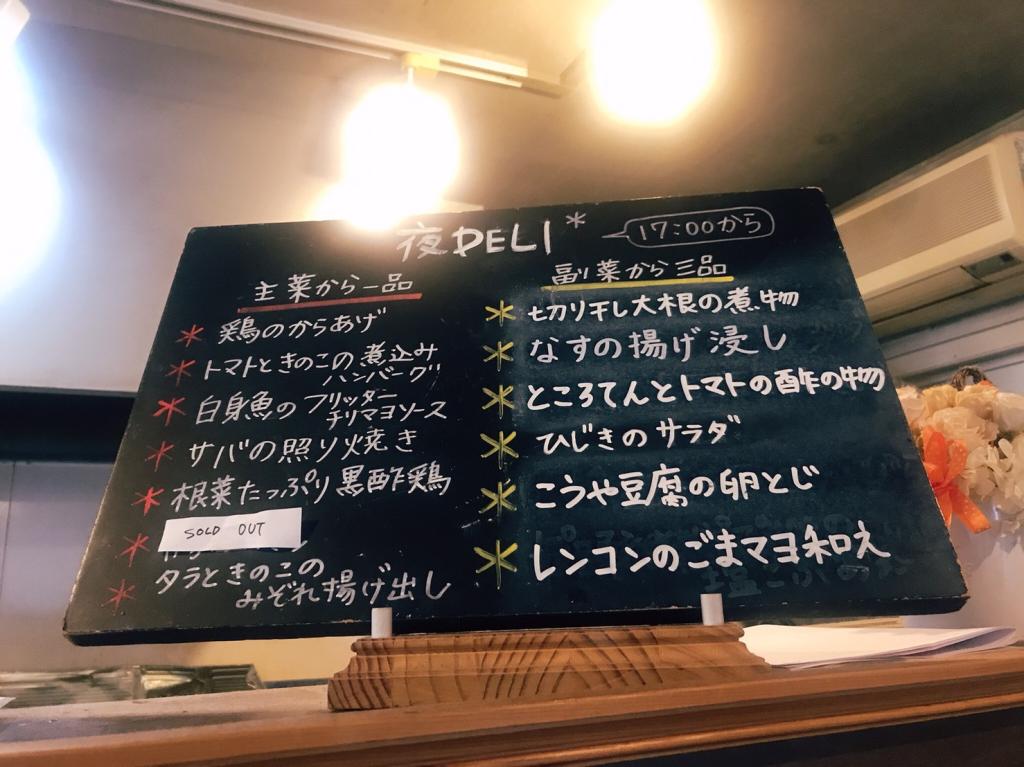 夜DELI*
17:00から
主菜から一品
* 鶏のからあげ
* トマトときのこの煮込み
ハンバーグ
* 白身魚のフリッター
チリマヨソース
* サバの照り焼き
* 根菜たっぷり黒酢鶏
* SOLD OUT
* タラときのこの
みぞれ揚げ出し
副菜から三品
* 切り干し大根の煮物
* なすの揚げ浸し
* ところてんとトマトの酢の物
* ひじきのサラダ
* こうや豆腐の卵とじ
* レンコンのごまマヨ和え